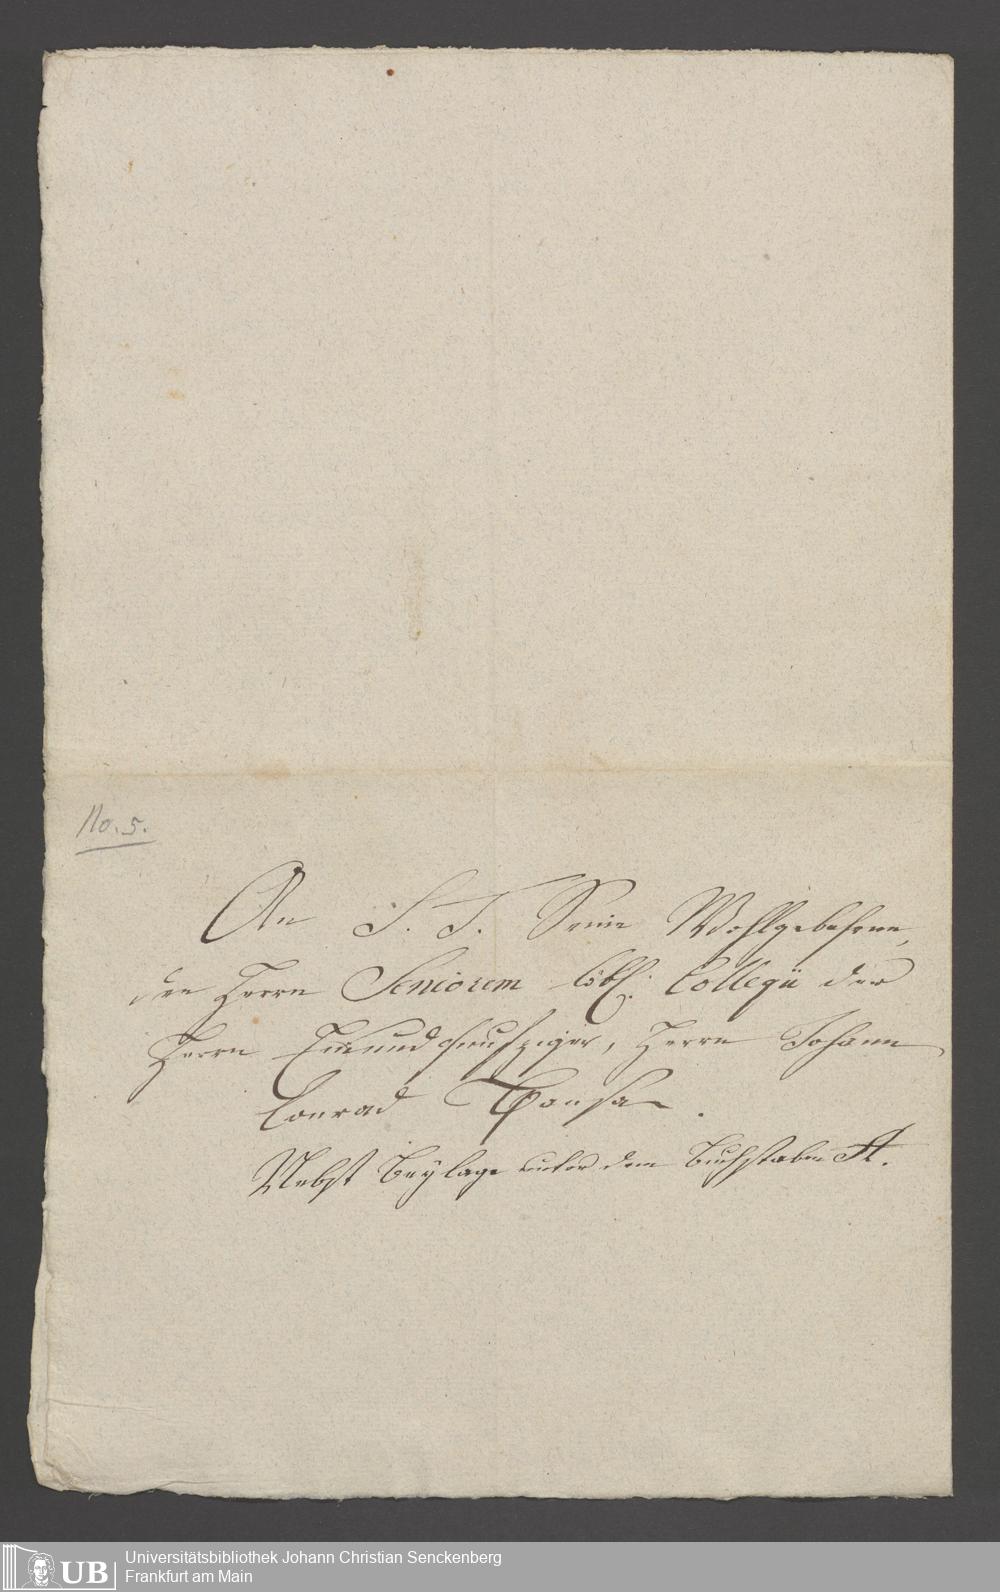 No. 5.
An S. T. Seine Wohlgebohrne,
den Herrn Seniorem löbl. Collegii der
Herrn Einundfunfziger, Herrn Johann
Conrad
Nebst Beylage unter dem Buchstaben A.
UB
Universitätsbibliothek Johann Christian Senckenberg
Frankfurt am Main